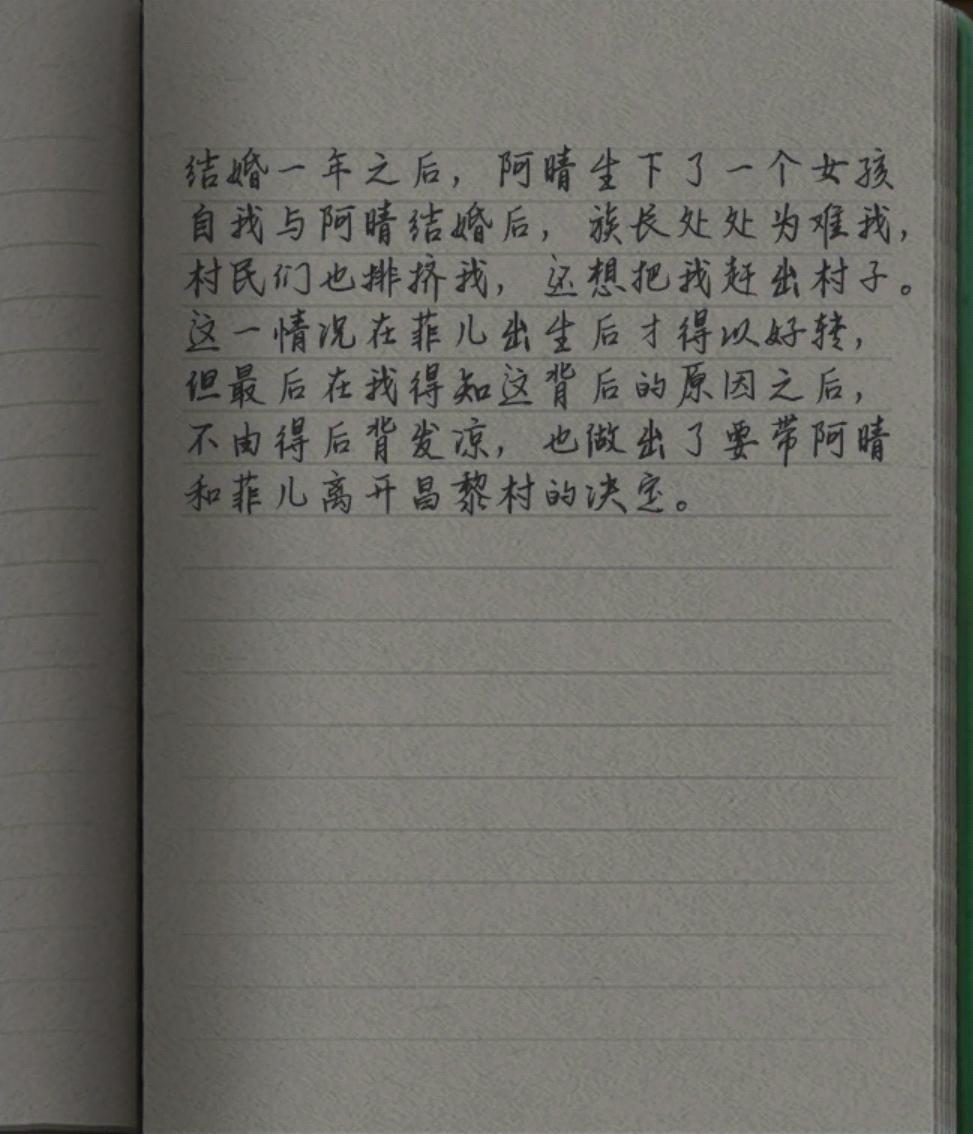 结婚一年之后，阿晴生下了一个女孩
自我与阿晴结婚后，族长处处为难我，
村民们也排挤我，还想把我赶出村子。
这一情况在菲儿出生后才得以好转，
但最后在我得知这背后的原因之后，
不由得后背发凉，也做出了要带阿晴
和菲儿离开昌黎村的决定。